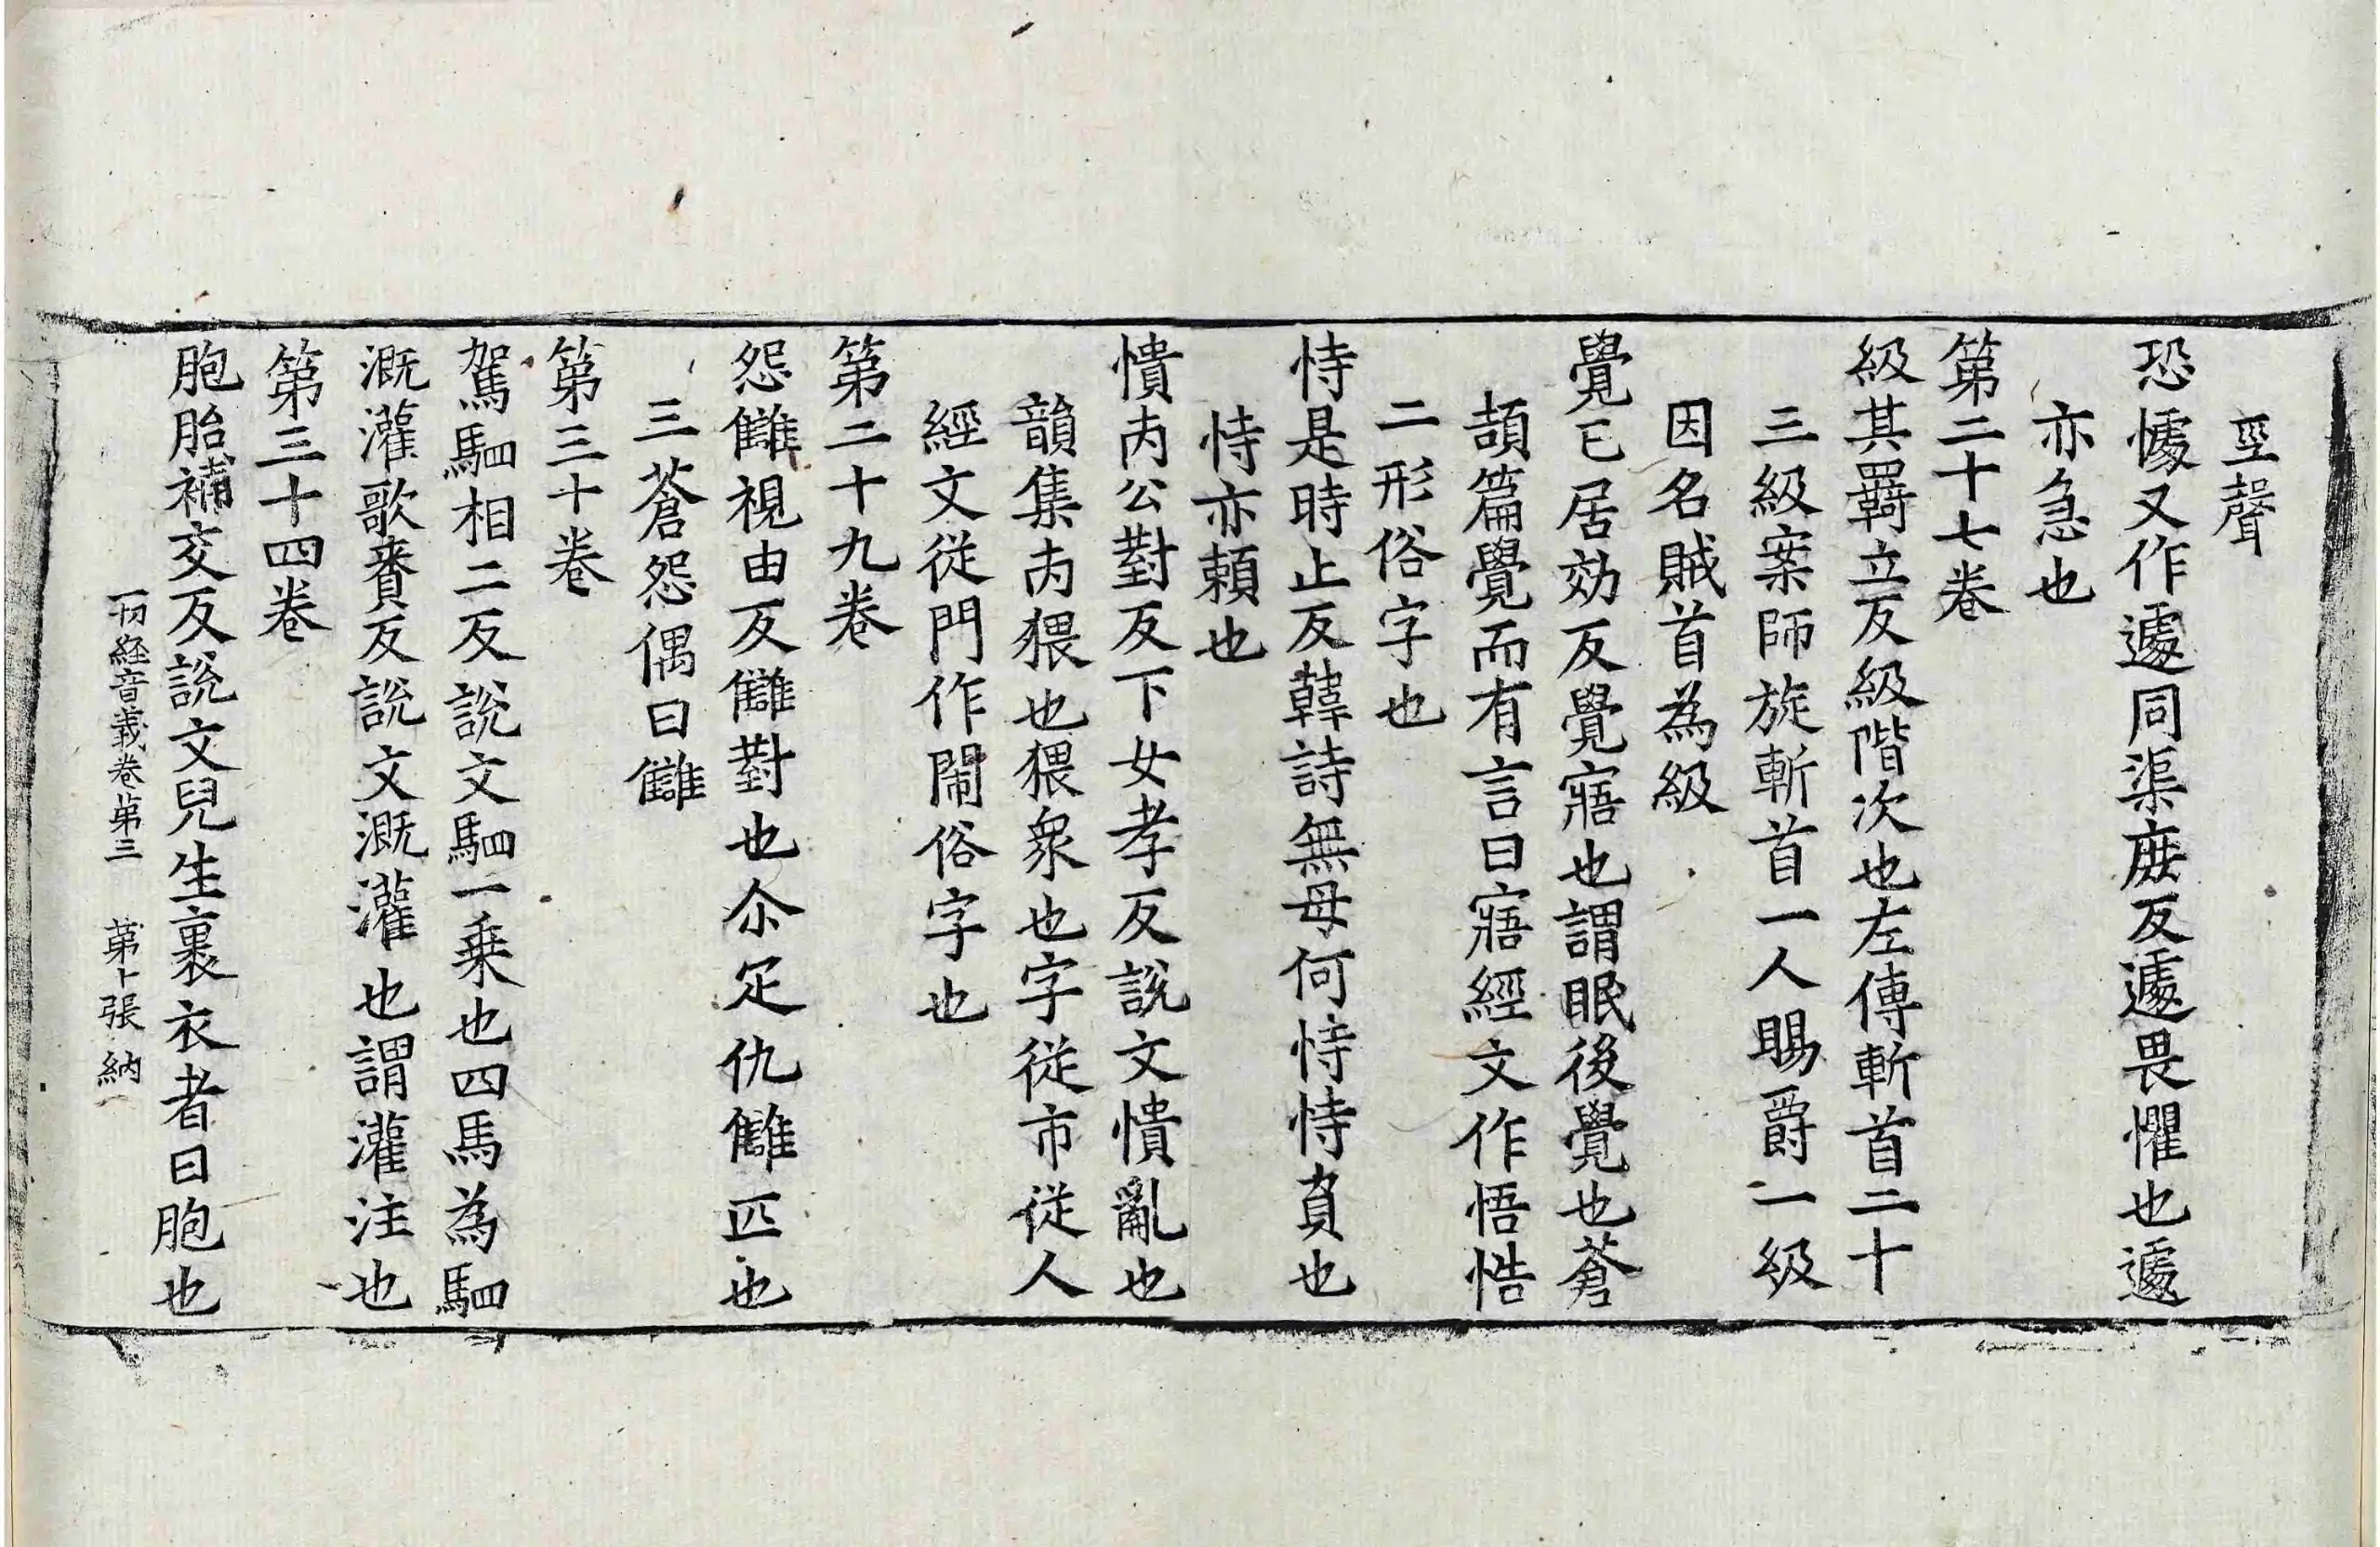 巠聲
恐懅又作遽同渠庶反遽畏懼也遽
亦急也
第二十七卷
級其羇立反級階次也左傳斬首二十
三級案師旋斬首一人賜爵一級
因名賊首為級
覺已居効反覺寤也謂眠後覺也蒼
頡篇覺而有言曰寤經文作悟悎
二形俗字也
恃是時止反韓詩無母何恃恃負也
恃亦賴也
憒丙公對反下女孝反說文憒亂也
韻集丙猥也猥衆也字從市從人
經文從門作閙俗字也
第二十九卷
怨讎視由反讎對也尒疋仇讎匹也
三蒼怨偶曰讎
第三十卷
駕駟相二反說文駟一乗也四馬為駟
溉灌歌賚反說文溉灌也謂灌注也
第三十四卷
胞胎補交反說文兒生裹衣者曰胞也
一切經音義卷第三 第十張 納